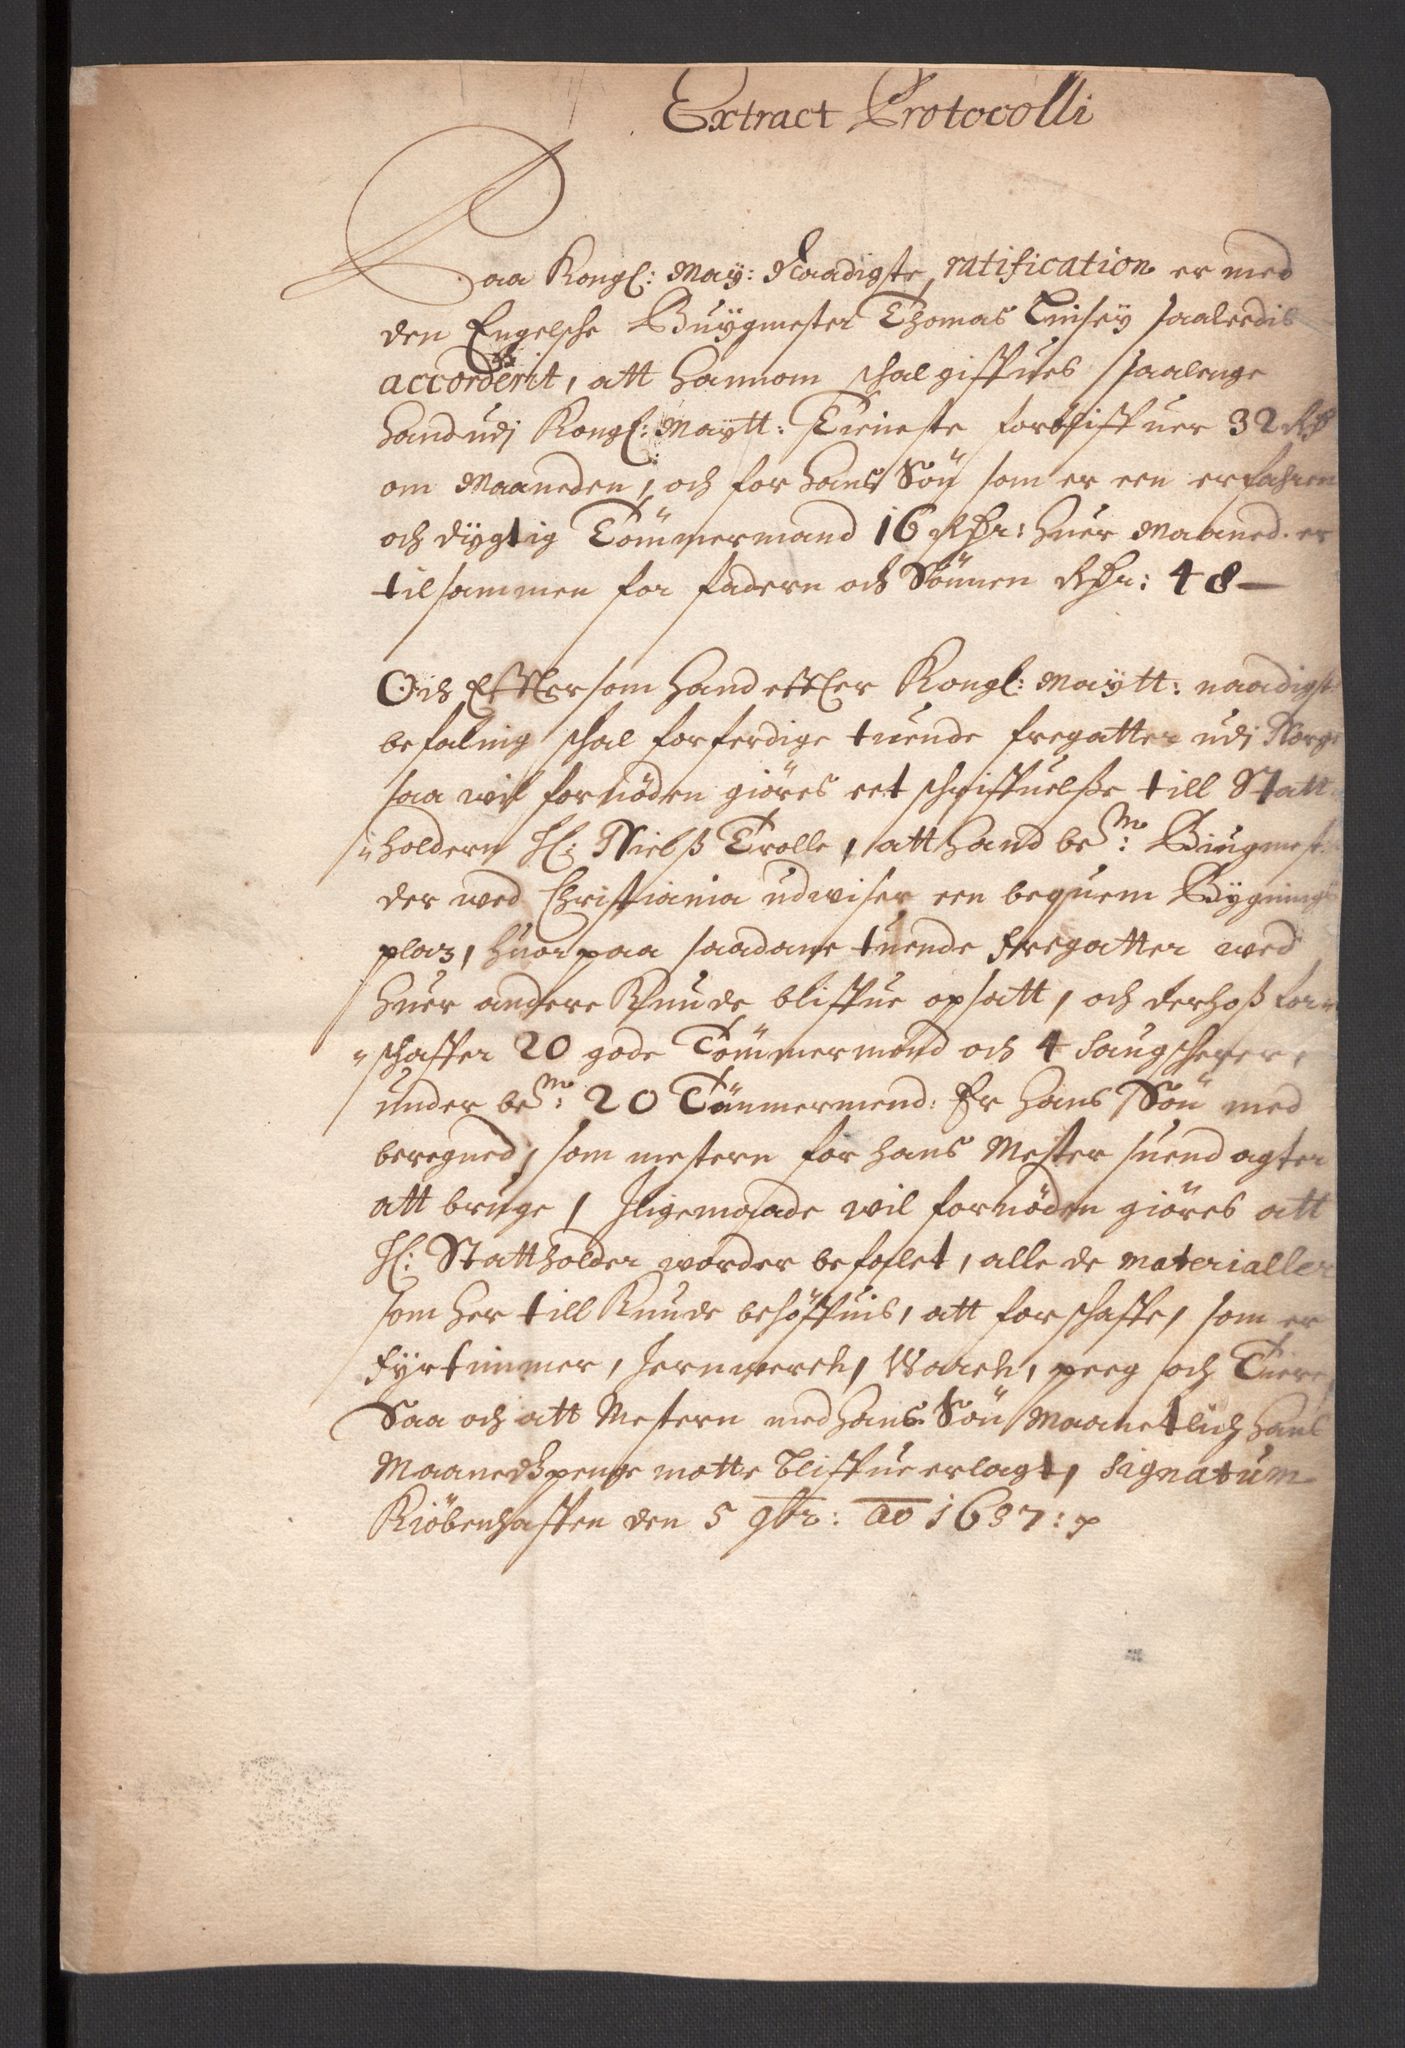 Extract Protocolli
Paa Kongl: May: Naadigste ratification er med
den Engelsche Buÿgmester Thomas Tinsej saaleedis
accorderit, att hannom schal giffues saalenge
hand udj Kongl: Maytt: Tieneste forbliffuer 32 Rd
om Maaneden, och for hans Sön som er een erfahren
och dÿgtig Tömmermand 16 Rdr: huer Maaned. er
tilsammen for fadern och Sönnen Rdr: 48 —
Och Effter som hand effter Kongl: Maÿtt: naadigste
befaling schal forferdige tuende fregatter udj Norge
saa wil fornöden giöres eet schriffuelße till Statt
holdern H: Nielß Trolle, att hand bem: Biugmest.
der wed Christiania udwiser een bequem Bÿgnings
plaz, huorpaa saadane tuende fregatter wed
huer andere Kunde bliffue opsatt, och derhoß for
schaffer 20 gode Tömmermend och 4 Saugscherer,
under bem: 20 Tömmermend. Er hans Sön med
beregned, som mestern for hans Mester suend agter
att bruge, Jligemaade wil fornöden giöres att
H: Stattholder worder befalet, alle de materialler
som her till Kunde behöffuis, att forschaffe, som er
Fÿrtimmer, Jernwerch, Warch, peeg och Tiere,
Saa och att Mestern med hans Sön Maanetlich hans
Maanedtzpenge motte bliffue erlagt, Signatum
Kiöbenhaffen den 5 9br: ao 1657: